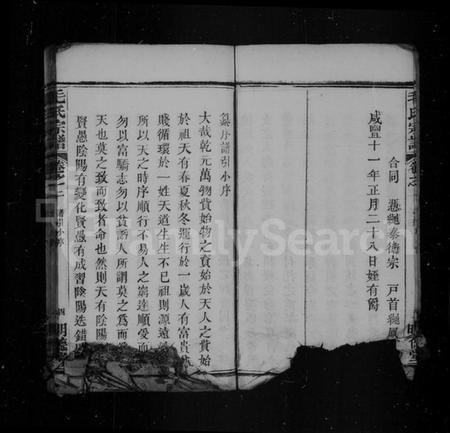 毛氏宗譜
合同 憑 秦德宗 戶首
咸豐十一年正月二十八日姪有
纂序譜引小序
大哉乾元萬物資始物之資始於天人之資始
於祖天有春夏秋冬運行於一歲人有富貴
賤循環於一姓天道生生不已祖則源遠
所以天之時序順行不易人之窮達順受而
勿以富驕志勿以貧 所謂莫之為而
天也莫之致而致者命也然則天有陰陽
賢愚陰陽有變化賢愚有成習陰陽迭錯
毛氏宗譜 卷之一 譜引小序 四
FamilySearch